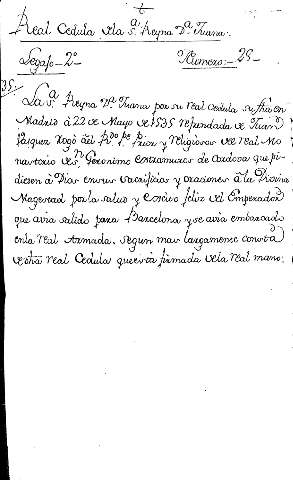 Real Cedula de la S.ª Reyna D.ª Juana.
Legajo - 2º - Numero - 25 -
35. La S.ª Reyna D.ª Juana por su real cedula su fha en
Madrid à 22 de Mayo de 1535 refrendada de Juan
Vazquez rogò àel R.do P.e Prior y religiosos de el real Mo
nasterio de S.n Geronimo extramuros de Cordova que pi
diesen à Dios en sus sacrificios y oraciones à la Divina
Magestad por la salud y exito feliz del Emperador
que avia salido para Barcelona y se avia embarcado
en la real Armada, segun mas largamente consta
de dha real Cedula que està firmada de la real mano.